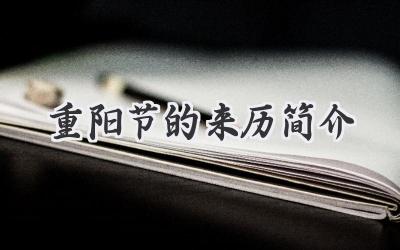 重阳节的来历简介